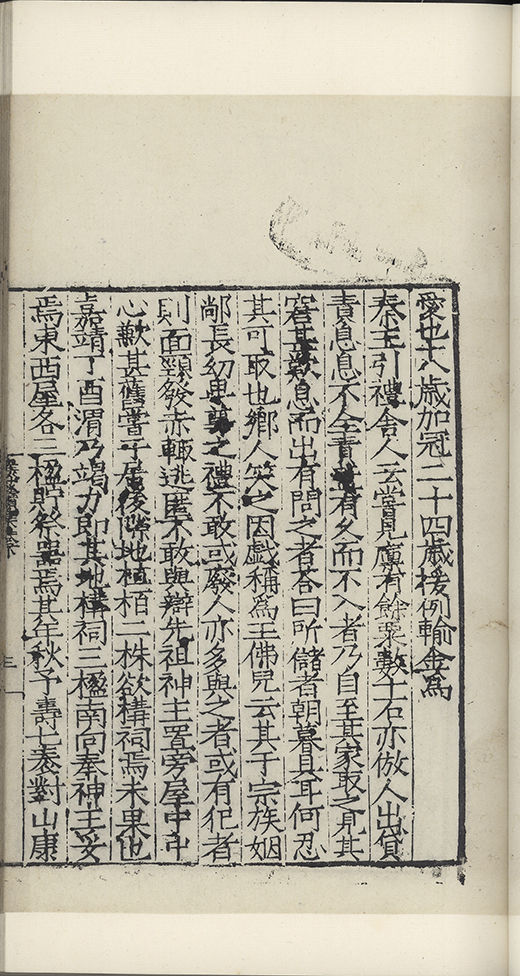 愛也十八歲加冠二十四歲援例輸金爲
秦王引禮舍人云嘗見廪有餘粟數十石亦倣人出貸
責息息不全責其有久而不入者乃自至其家取之見其
窘甚歎息而出有問之者荅曰所儲者朝暮具耳何忍
其可取也鄉人笑之因戯稱爲王佛兒云其于宗族姻
鄰長幼卑尊之禮不敢或廢人亦多與之者或有犯者
則面頸發赤輙逃匿不敢與辯先祖神主置旁屋中中
心歉甚舊嘗于屋後隙地植栢二株欲構祠焉未果也
嘉靖丁酉渭乃竭力即其地構祠三楹南向奉神主妥
焉東西屋各三楹貯祭噐焉其年秋予壽七袠對山康
三